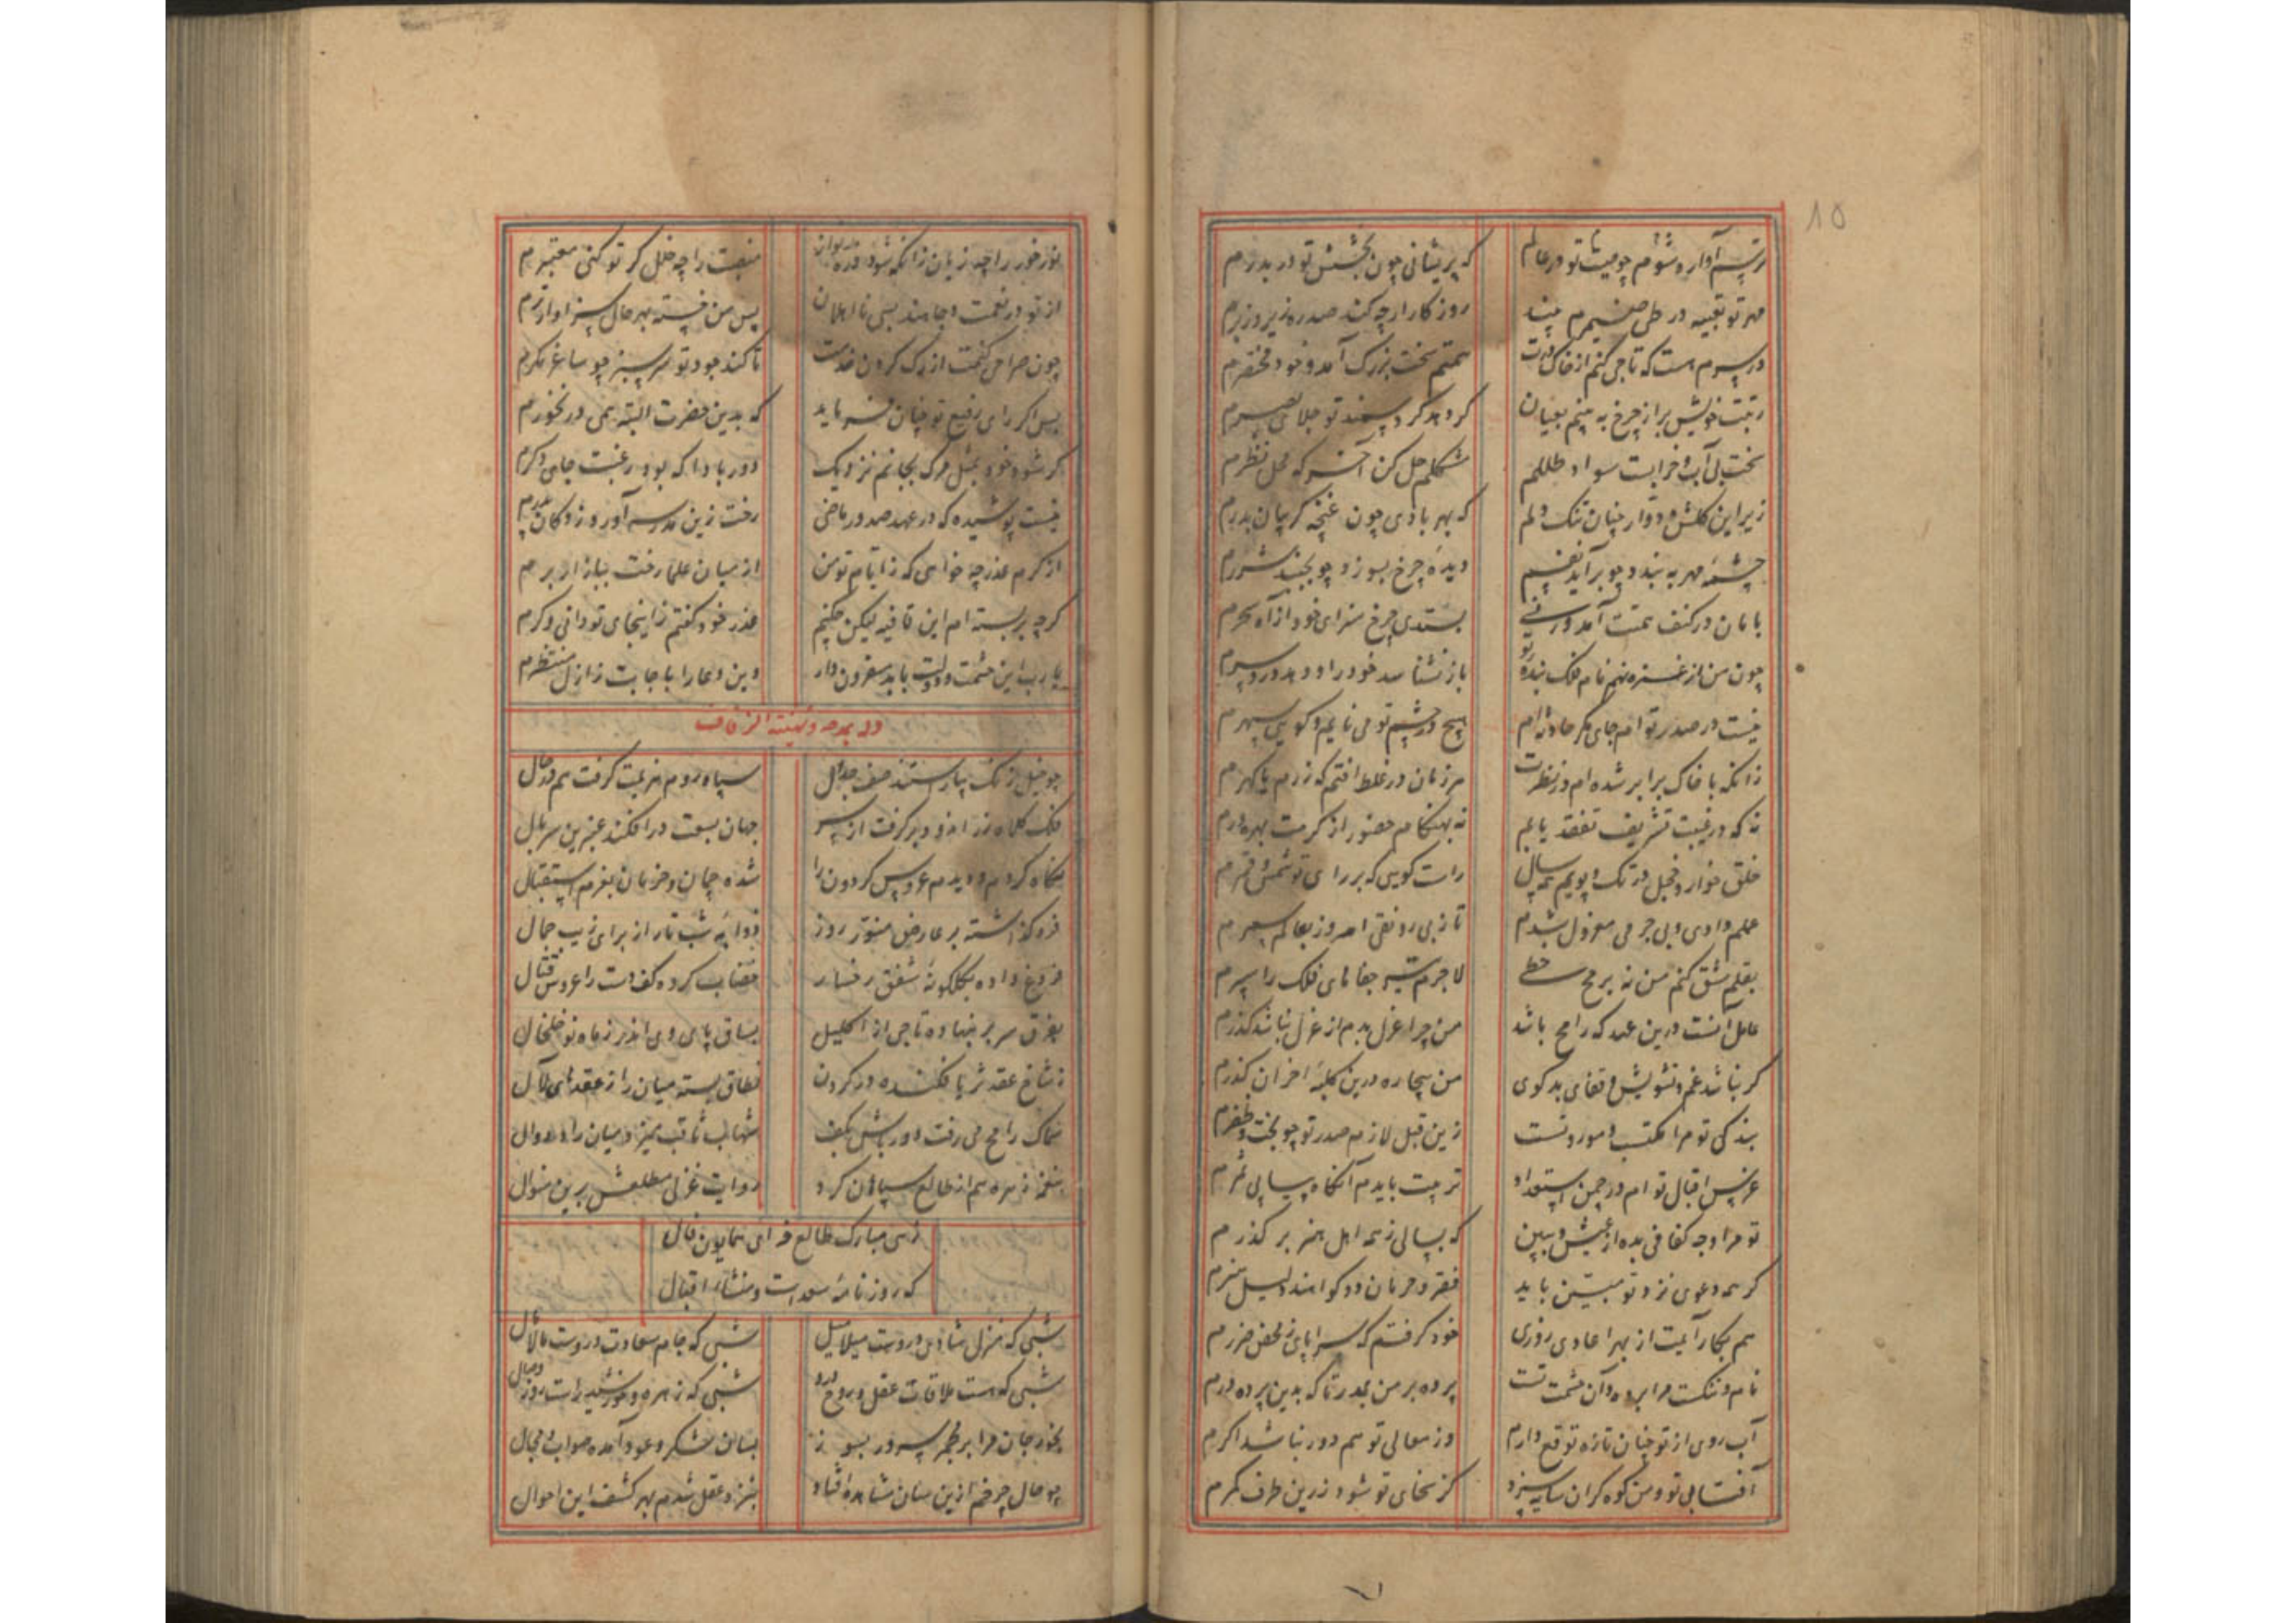 15
ترسم آواره شوم چو صیت تو در عالم
که پریشانی چون بخشش تو در بدرم
مهر تو تعبیه در طی ضمیرم بیند
روزکار ار چه کند صد ره زیر و زبرم
در سرم است که تاجی کنم از خاک درت
همتم سخت بزرک آمد و خود مختصرم
رتبت خویش بر از چرخ به بینم بعیان
کر دهد کرد سمند تو جلای بصرم
سخت بی آب و خرابست سواد طللم
مشکلم حل کن آخر که محل نظرم
زیر این کلشن دوار چنان تنک دلم
که بهر بادی چون غنچه کریبان بدرم
چشمه مهر به بندد چو برآید نفسم
دیده چرخ بسوزد چو بجنبد شررم
با مان در کنف همتت آمد ور نی
بستدی چرخ سزای خود از آه سحرم
چون من از غره نهم نام فلک بنده تو
باز نشناسد خود را و دهد دردسرم
نیست در صدر تو ام جای مکر حادثه ام
هیچ در چشم تو می نایم کویی سهرم
زانکه با خاک برابر شده ام در نظرت
هر زمان در غلط افتم که زرم یا کهرم
نه که در غیبت تشریف تفقد یابم
نه بهنکام حضور از کرمت بهره ورم
خلق خوار و خجل در تک و پویم همه سال
راست کویی که بر رای تو شمس و قمرم
عملم دادی و بی جرمی معزول شدم
تا ز بی رونقی امروز بعالم سمرم
بقلم مشق کنم من نه برمح خطی
لاجرم تیر جفاهای فلک را سپرم
عامل آنست درین عهد که رامح باشد
من چرا عزل بدم از عزل نباشد کذرم
کر نباشد غم و تشویش و قفای بدکوی
من بیچاره درین کلبه احزان کذرم
بندکی تو مرا مکتسب و موروثست
زین قبل لازم صدر تو چو بخت و ظفرم
غرس اقبال تو ام در چمن استعداد
تربیت بایدم آنکاه بیابی ثمرم
تو مرا وجه کفافی بده از عیش و ببین
که بسالی ز همه اهل هنر بر کذرم
کر همه دعوی نزد تو مبین باید
فقر و حرمان دو کواهند دلیل هنرم
هم بکار آیمت از بهر اعادی روزی
خود کرفتم که سراپای ز محض ضررم
نام و ننکست مرا برده و آن حشمت تست
پرده بر من بمدر تا که بدین پرده درم
آب روی از تو چنان تازه توقع دارم
وز معالی تو هم دور نباشد اکرم
آفتابی تو و من کوه کران سایه سزد
کز سخای تو شود زرین طرف کمرم
نور خور را چه زیان زانکه شود ذره
منصبت را چه خلل کر تو کنی معتبرم
از تو در نعمت و جاهند بسی نااهلان
پس من خسته بهر حال سزاوارترم
چون صراحی کنمت از رک کردن خدمت
تا کند جود تو سرسبز چو ساغر مکرم
پس اکر رای رفیع تو چنان فرماید
که بدین حضرت البته همی درنخورم
کر شود خود بمثل مرک بجانم نزدیک
دور بادا که بود رغبت جای دکرم
نیست پوشیده که در عهد صدور ماضی
رخت زین مدرسه آورد ز دکان پدرم
از کرم عذر چه خواهی که ز ایام تو من
از میان علما رخت ببازار برم
کرچه بربسته ام این قافیه لیکن چکنم
عذر خود کفتم زاینجای تو دانی و کرم
یا رب این حشمت و دولت بابد مقرون دار
وین دعا را باجابت ز ازل منتظرم
وله یمدحه و تهنیة الزفاف
چو خیل زنک بیاراستند صف جدال
سپاه روم هزیمت کرفت هم در حال
فلک کلاه زر اندود برکرفت از سر
جهان بسفت درافکند عنبرین سربال
نکاه کردم و دیدم عروس کردون را
شده چمان و خرامان بعزم استقبال
فروکذاشته بر عارض منور روز
ذوابه شب تار از برای زیب جمال
فروغ داده بکلکونه شفق رخسار
خضاب کرده کف دست را عروس قتال
بفرق سر بر نهاده تاجی از اکلیل
بساق پای وی اندر ز ماه نو خلخال
ز شاخ عقد ثریا فکنده در کردن
نطاق بسته میان را ز عقدهای لآل
سماک رامح می رفت دورباش بکف
شهاب ثاقب میزد میان راه دوال
بنغمه زهره هم از طالع سپاهان کرد
روایت غزلی مطلعش برین منوال
زهی مبارک طالع زهی همایون فال
که روزنامه سعدست و منشاء اقبال
شبی که منزل شادی دروست میلامیل
شبی که جام سعادت دروست مالامال
شبی که هست ملاقات عقل و روح درو
شبی که زهره و خورشید راست روز وصال
بخور جان مرا بر مجمر سرور بسوز
بسان شکر و عود آمده صواب و مجال
چو حال چرخم ازین سان مشاهده افتاد
بنزد عقل شدم بهر کشف این احوال